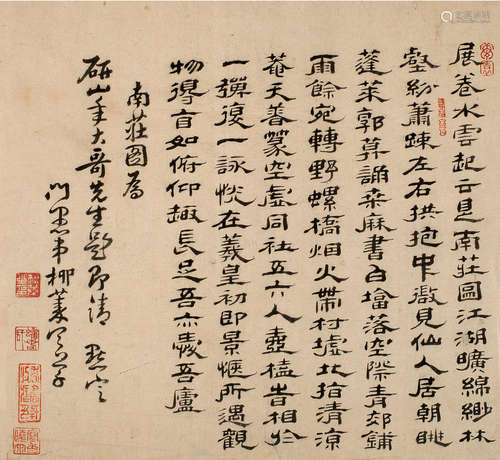 展卷水雲起云見南莊圖江湖曠綿緲林
壑紛蕭踈左右拱抱中微見仙人居朝眺
蓬莱郭草謝桒麻書白墖落空際青郊鋪
雨餘宛轉野螺橋烟火帶村墟北指清涼
菴天善篆空虛同社五六人壺榼昔相於
一彈復一詠恍在羲皇初即景愜所遇觀
物得盲如俯仰趣長足吾亦愛吾廬
南莊圖為
研山年大哥先生題即請
門愚弟柳